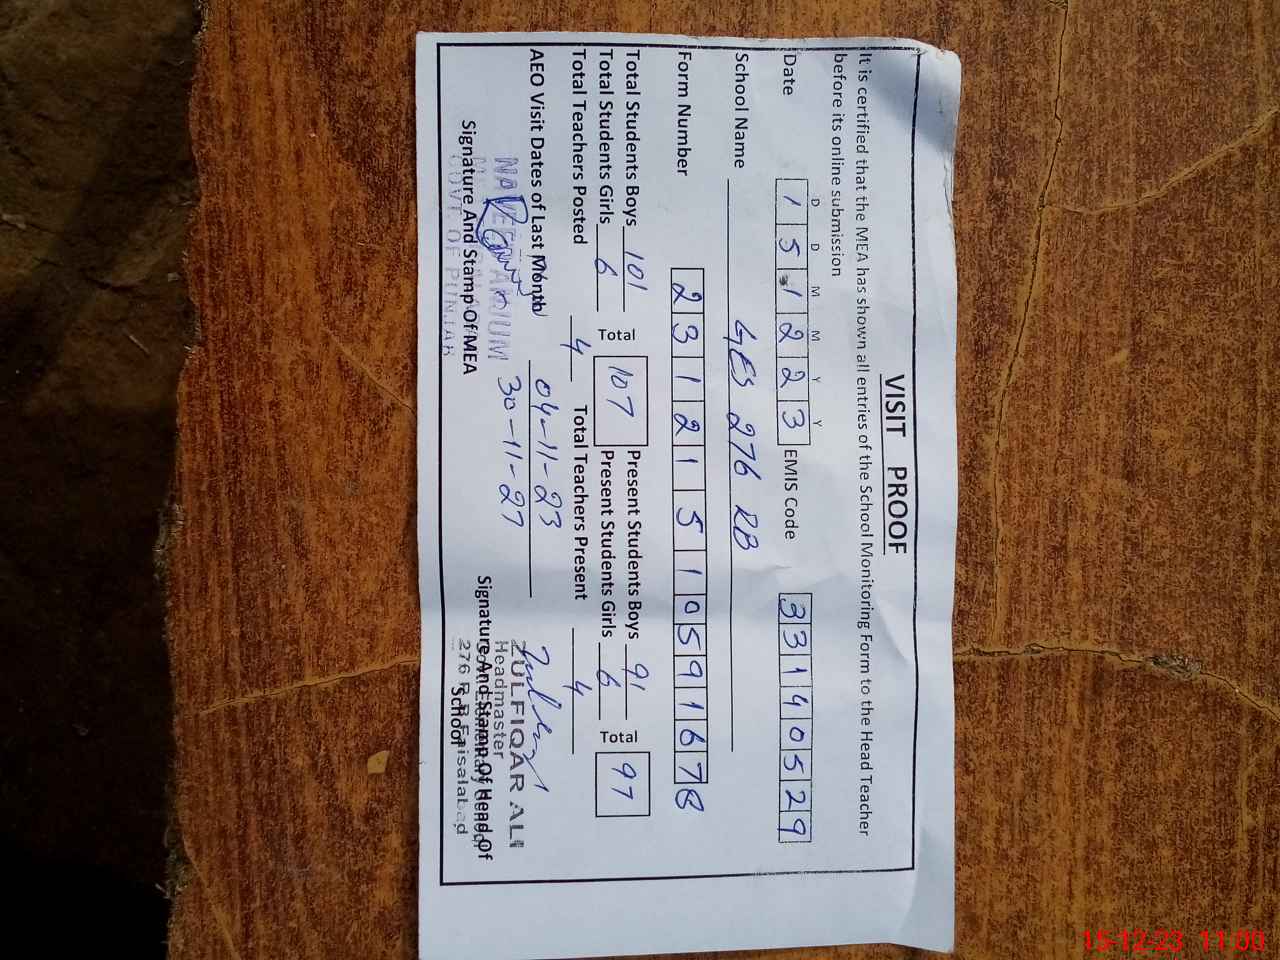 VISIT PROOF
It is certified that the MEA has shown all entries of the School Monitoring Form to the Head Teacher
before its online submission
D D M M Y Y
Date 1 5 1 2 2 3 EMIS Code 3 3 1 4 0 5 2 9
School Name GES 276 RB
Form Number 2 3 1 2 1 5 1 0 5 9 1 6 7 8
Total Students Boys 101 Present Students Boys 91
Total Students Girls 6 Total 107 Present Students Girls 6 Total 97
Total Teachers Posted 4 Total Teachers Present 4
AEO Visit Dates of Last Month 04-11-23
30-11-27
ZULFIQAR ALI
Headmaster
Signature And Stamp Of MEA
GOVT. OF PUNJAB
Signature And Stamp Of Head Of
School
276 R.B Faisalabad
15-12-23 11:00